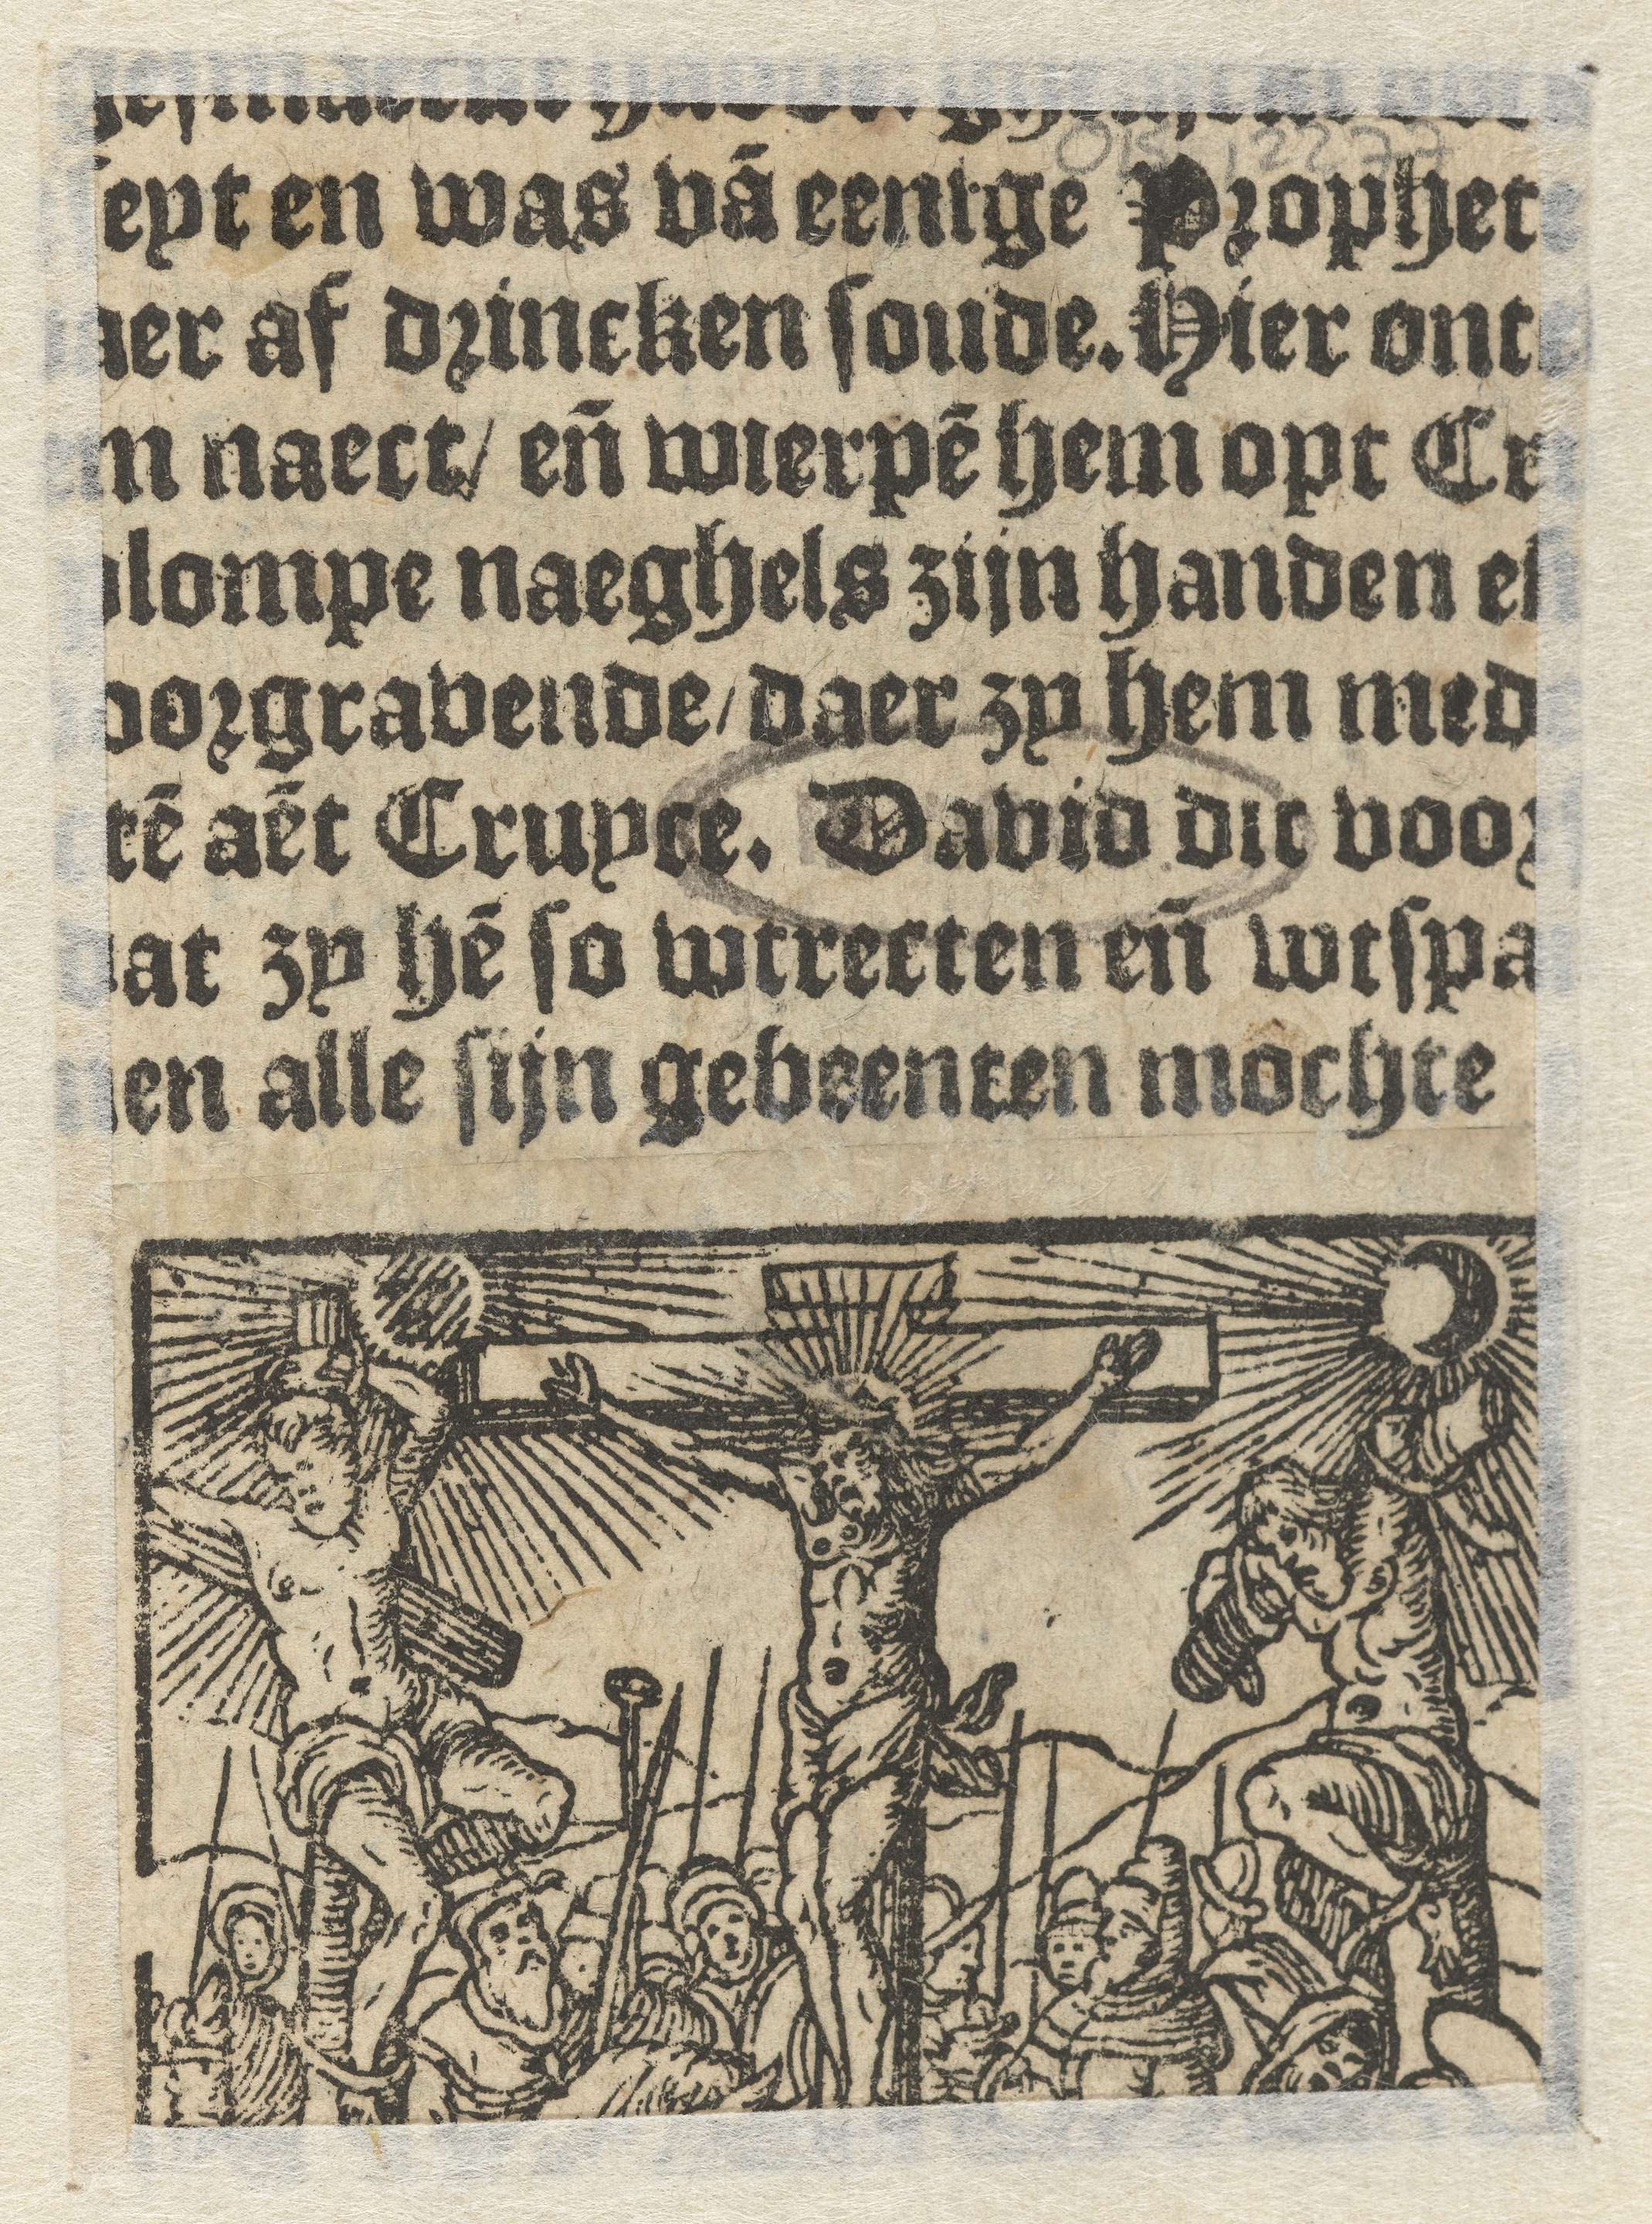 OB 12277
eyt en was vā eenige Prophet
aer af drincken soude. Hier ont
naect/ eñ wierpē hem opt Cr
plompe naeghels zijn handen eñ
oorgravende/ daer zy hem med
tē aēt Cruyce. David dit voor
dat zy hē so wtrecten eñ wtspa
en alle sijn gebeenten mochte